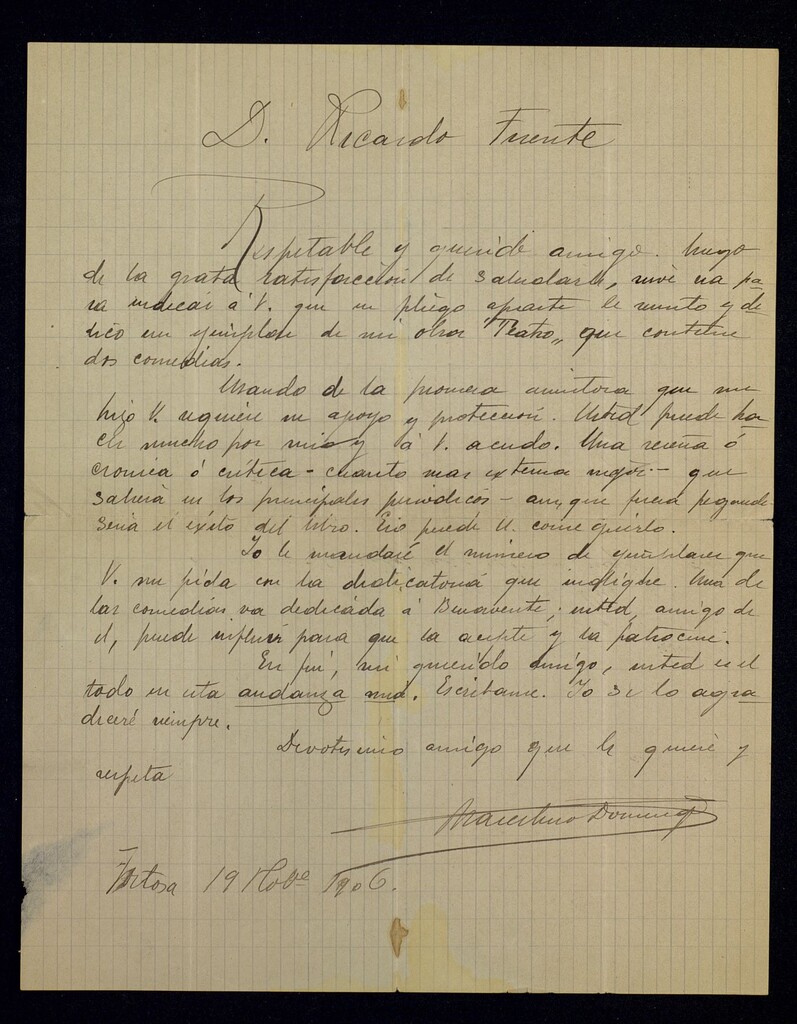 D. Ricardo Fuente
Respetable y querido amigo. Luego
de la grata satisfacción de saludarle, sirve la pa-
ra indicar á V. que en pliego aparte le remito y de-
dico un ejemplar de mi obra "Teatro„ que contiene
dos comedias.
Usando de la promesa que me
hizo V. requiero su apoyo y protección. Usted puede ha-
cer mucho por mi y á V. acudo. Una reseña ó
crónica ó crítica - cuanto mas extensa mejor - que
saliera en los principales periódicos - aunque fuera pegando
seria el éxito del libro. Eso puede V. conseguirlo.
Yo le mandaré el número de ejemplares que
V. me pida con la dedicatoria que indique. Una de
las comedias va dedicada á Benavente; usted, amigo de
el, puede influir para que la acepte y la patrocine.
En fin, mi querido amigo, usted es el
todo en esta andanza mia. Escribame. Yo se lo agra-
deceré siempre.
Devotisimo amigo que le quiere y
respeta
Marcelino Domingo
Tortosa 19 Nobe 1906.